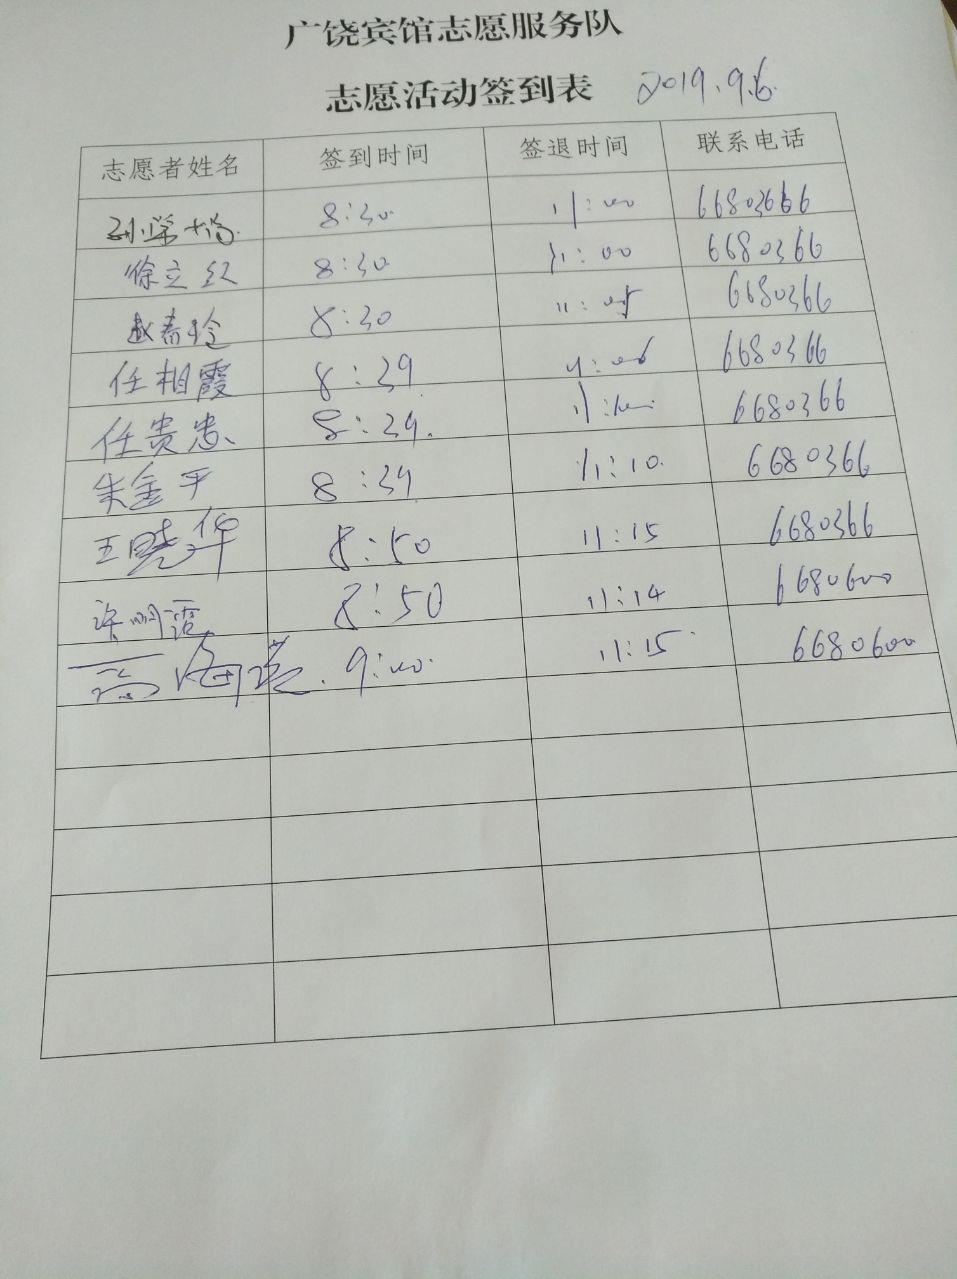 广饶宾馆志愿服务队
志愿活动签到表 2019.9.6
志愿者姓名 签到时间 签退时间 联系电话
8:30 11:00 66803666
徐立红 8:30 11:00 6680366
赵春玲 8:30 11:05 6680366
任相霞 8:39 11:06 6680366
任贵忠 8:39. 6680366
朱金平 8:39 11:10. 6680366
王晓华 8:50 11:15 6680366
许明霞 8:50 11:14 6680600
高海 9:00. 11:15 6680600